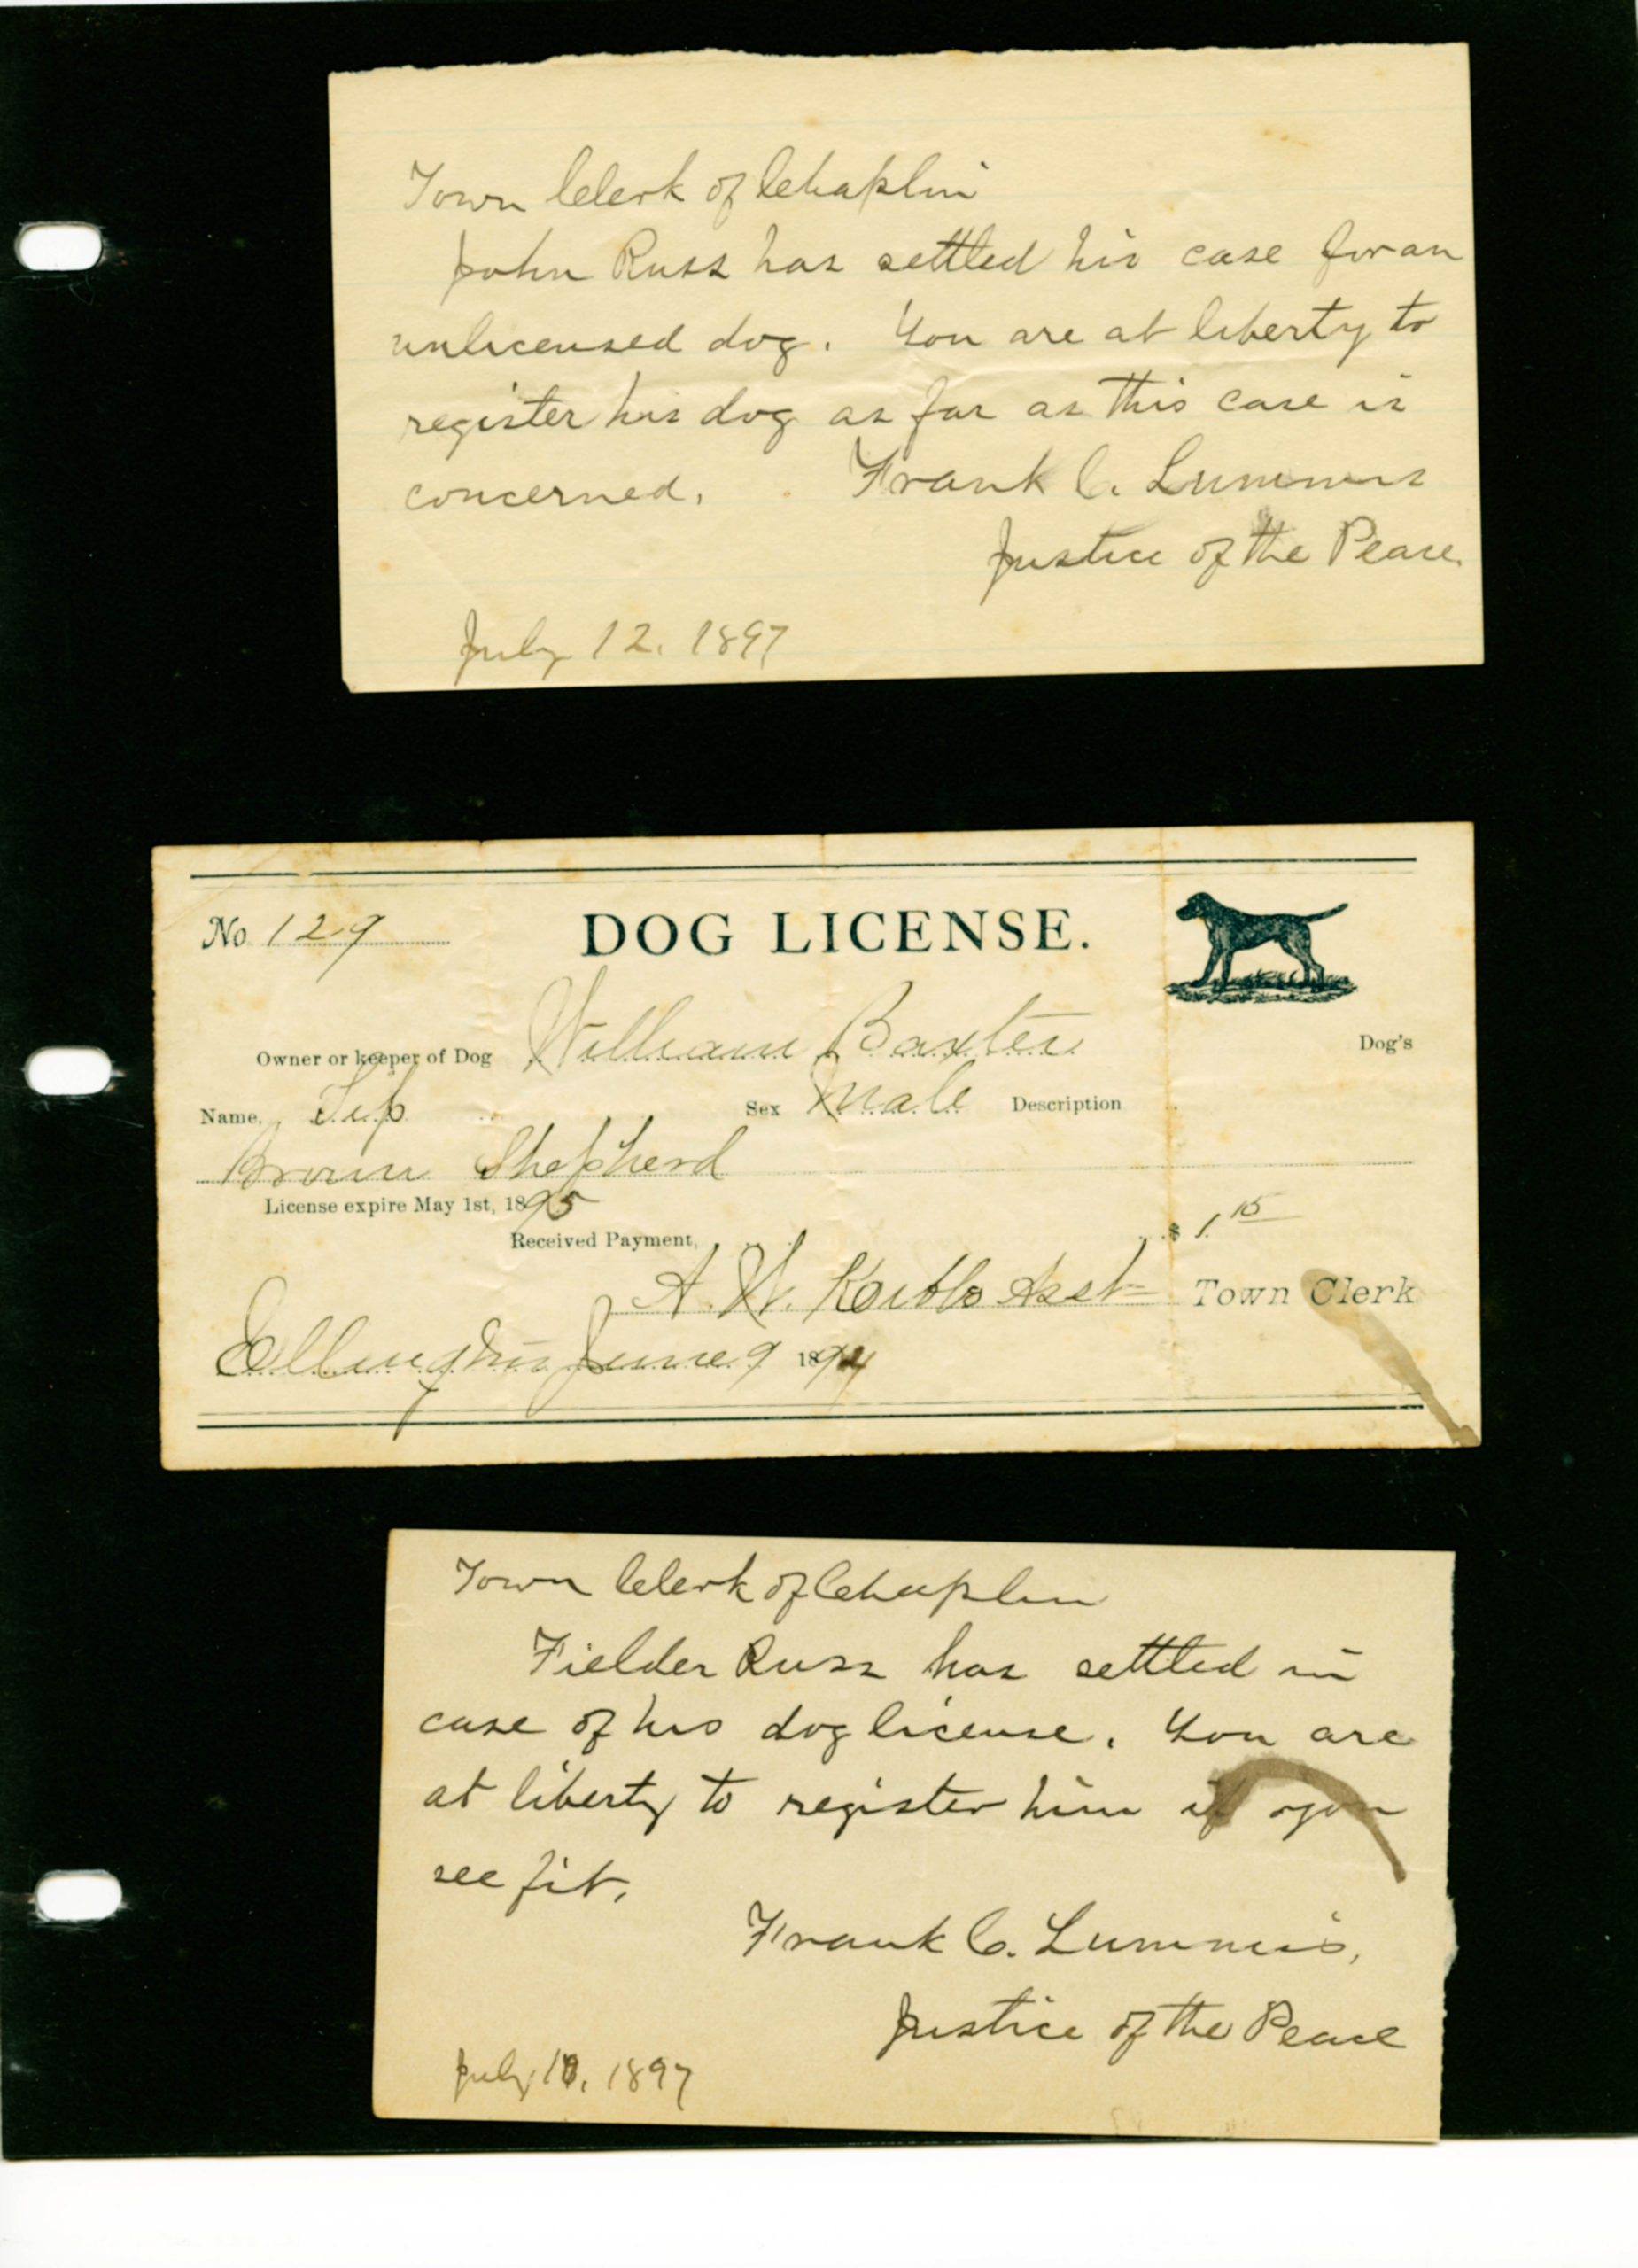 Town Clerk of Chaplin
John Russ has settled his case for an
unlicensed dog. You are at liberty to
register his dog as far as this case is
concerned. Frank C. Lummis
Justice of the Peace.
July 12, 1897
No. 129 DOG LICENSE.
Owner or keeper of Dog William Baxter Dog's
Name, Tip Sex Male Description
Brown Shepherd
License expire May 1st, 1895
Received Payment, $1.15
A. W. Asst Town Clerk
Ellington June 9 1894
Town Clerk of Chaplin
Fielder Russ has settled in
case of his dog license. You are
at liberty to register him if you
see fit.
Frank C. Lummis,
Justice of the Peace
July 1897